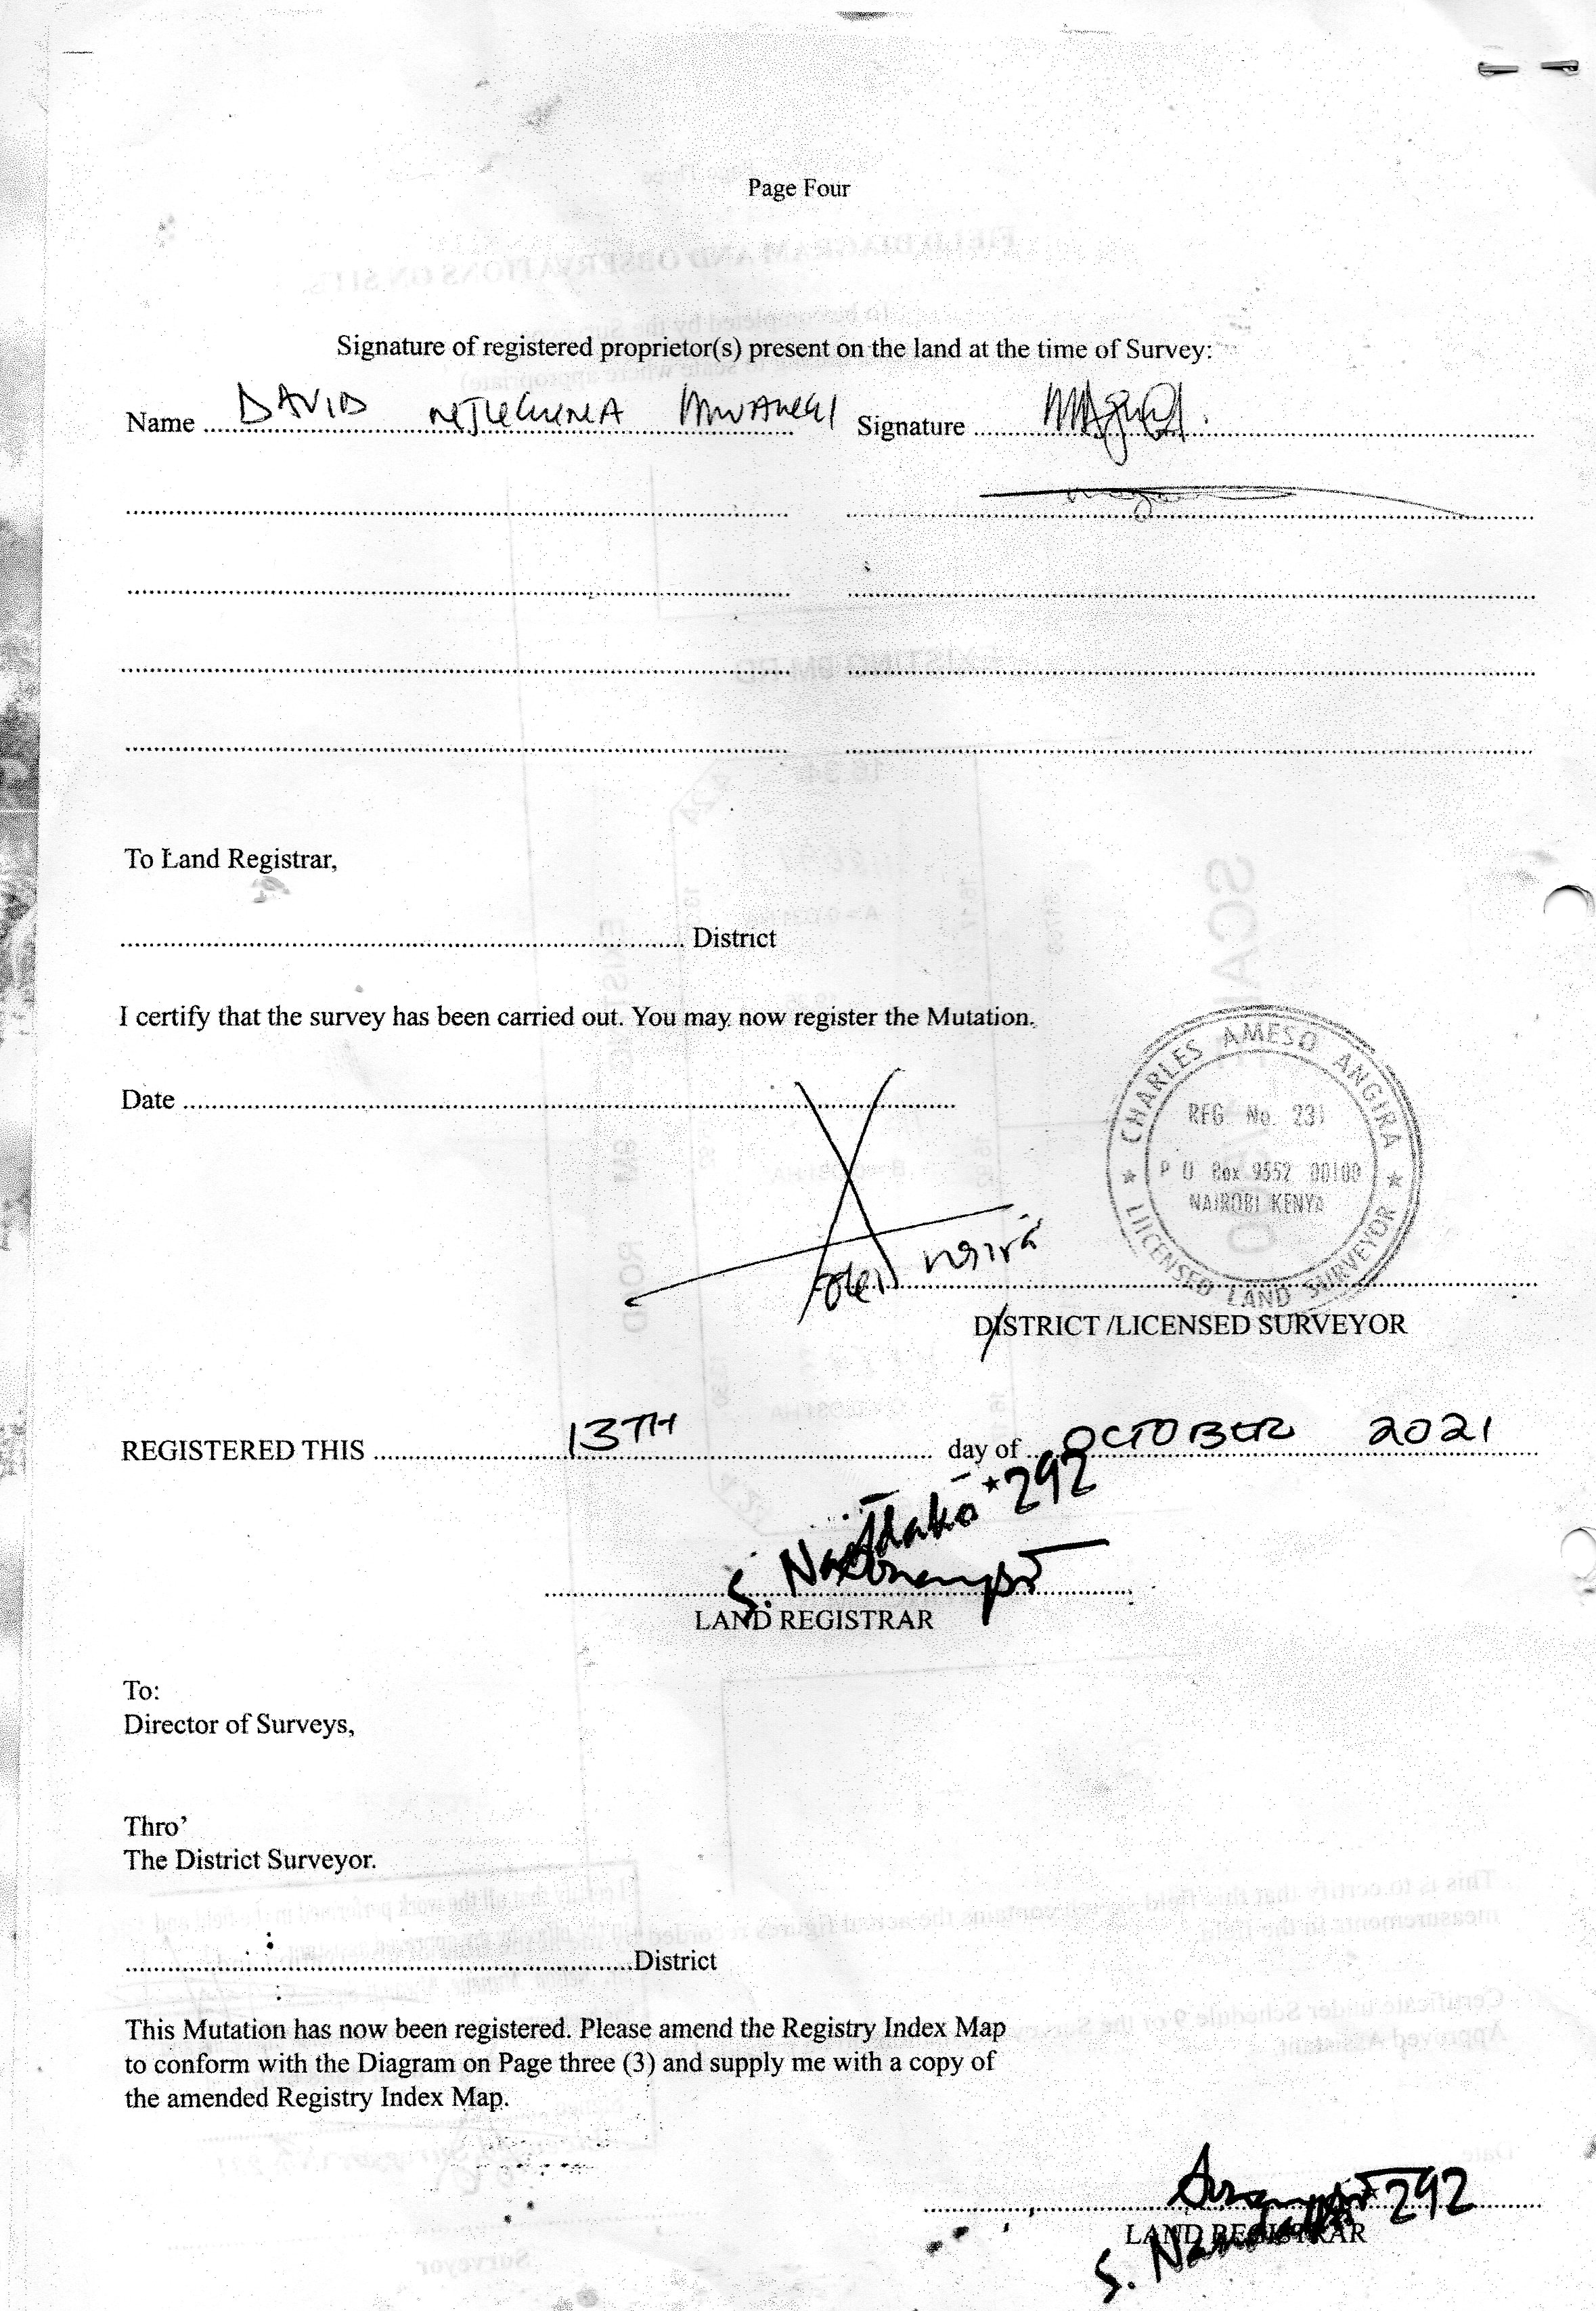 Page Four
Signature of registered proprietor(s) present on the land at the time of Survey:
Name DAVID MWANGI Signature
To Land Registrar,
District
I certify that the survey has been carried out. You may now register the Mutation.
Date
CHARLES AMESO ANGIRA
REG No. 231
P O Box 9552 00100
NAIROBI KENYA
LIICENSED LAND SURVEYOR
DISTRICT /LICENSED SURVEYOR
REGISTERED THIS 13TH day of OCTOBER 2021
S. *292
LAND REGISTRAR
To:
Director of Surveys,
Thro'
The District Surveyor.
District
This Mutation has now been registered. Please amend the Registry Index Map
to conform with the Diagram on Page three (3) and supply me with a copy of
the amended Registry Index Map.
*292
LAND REGISTRAR
S.